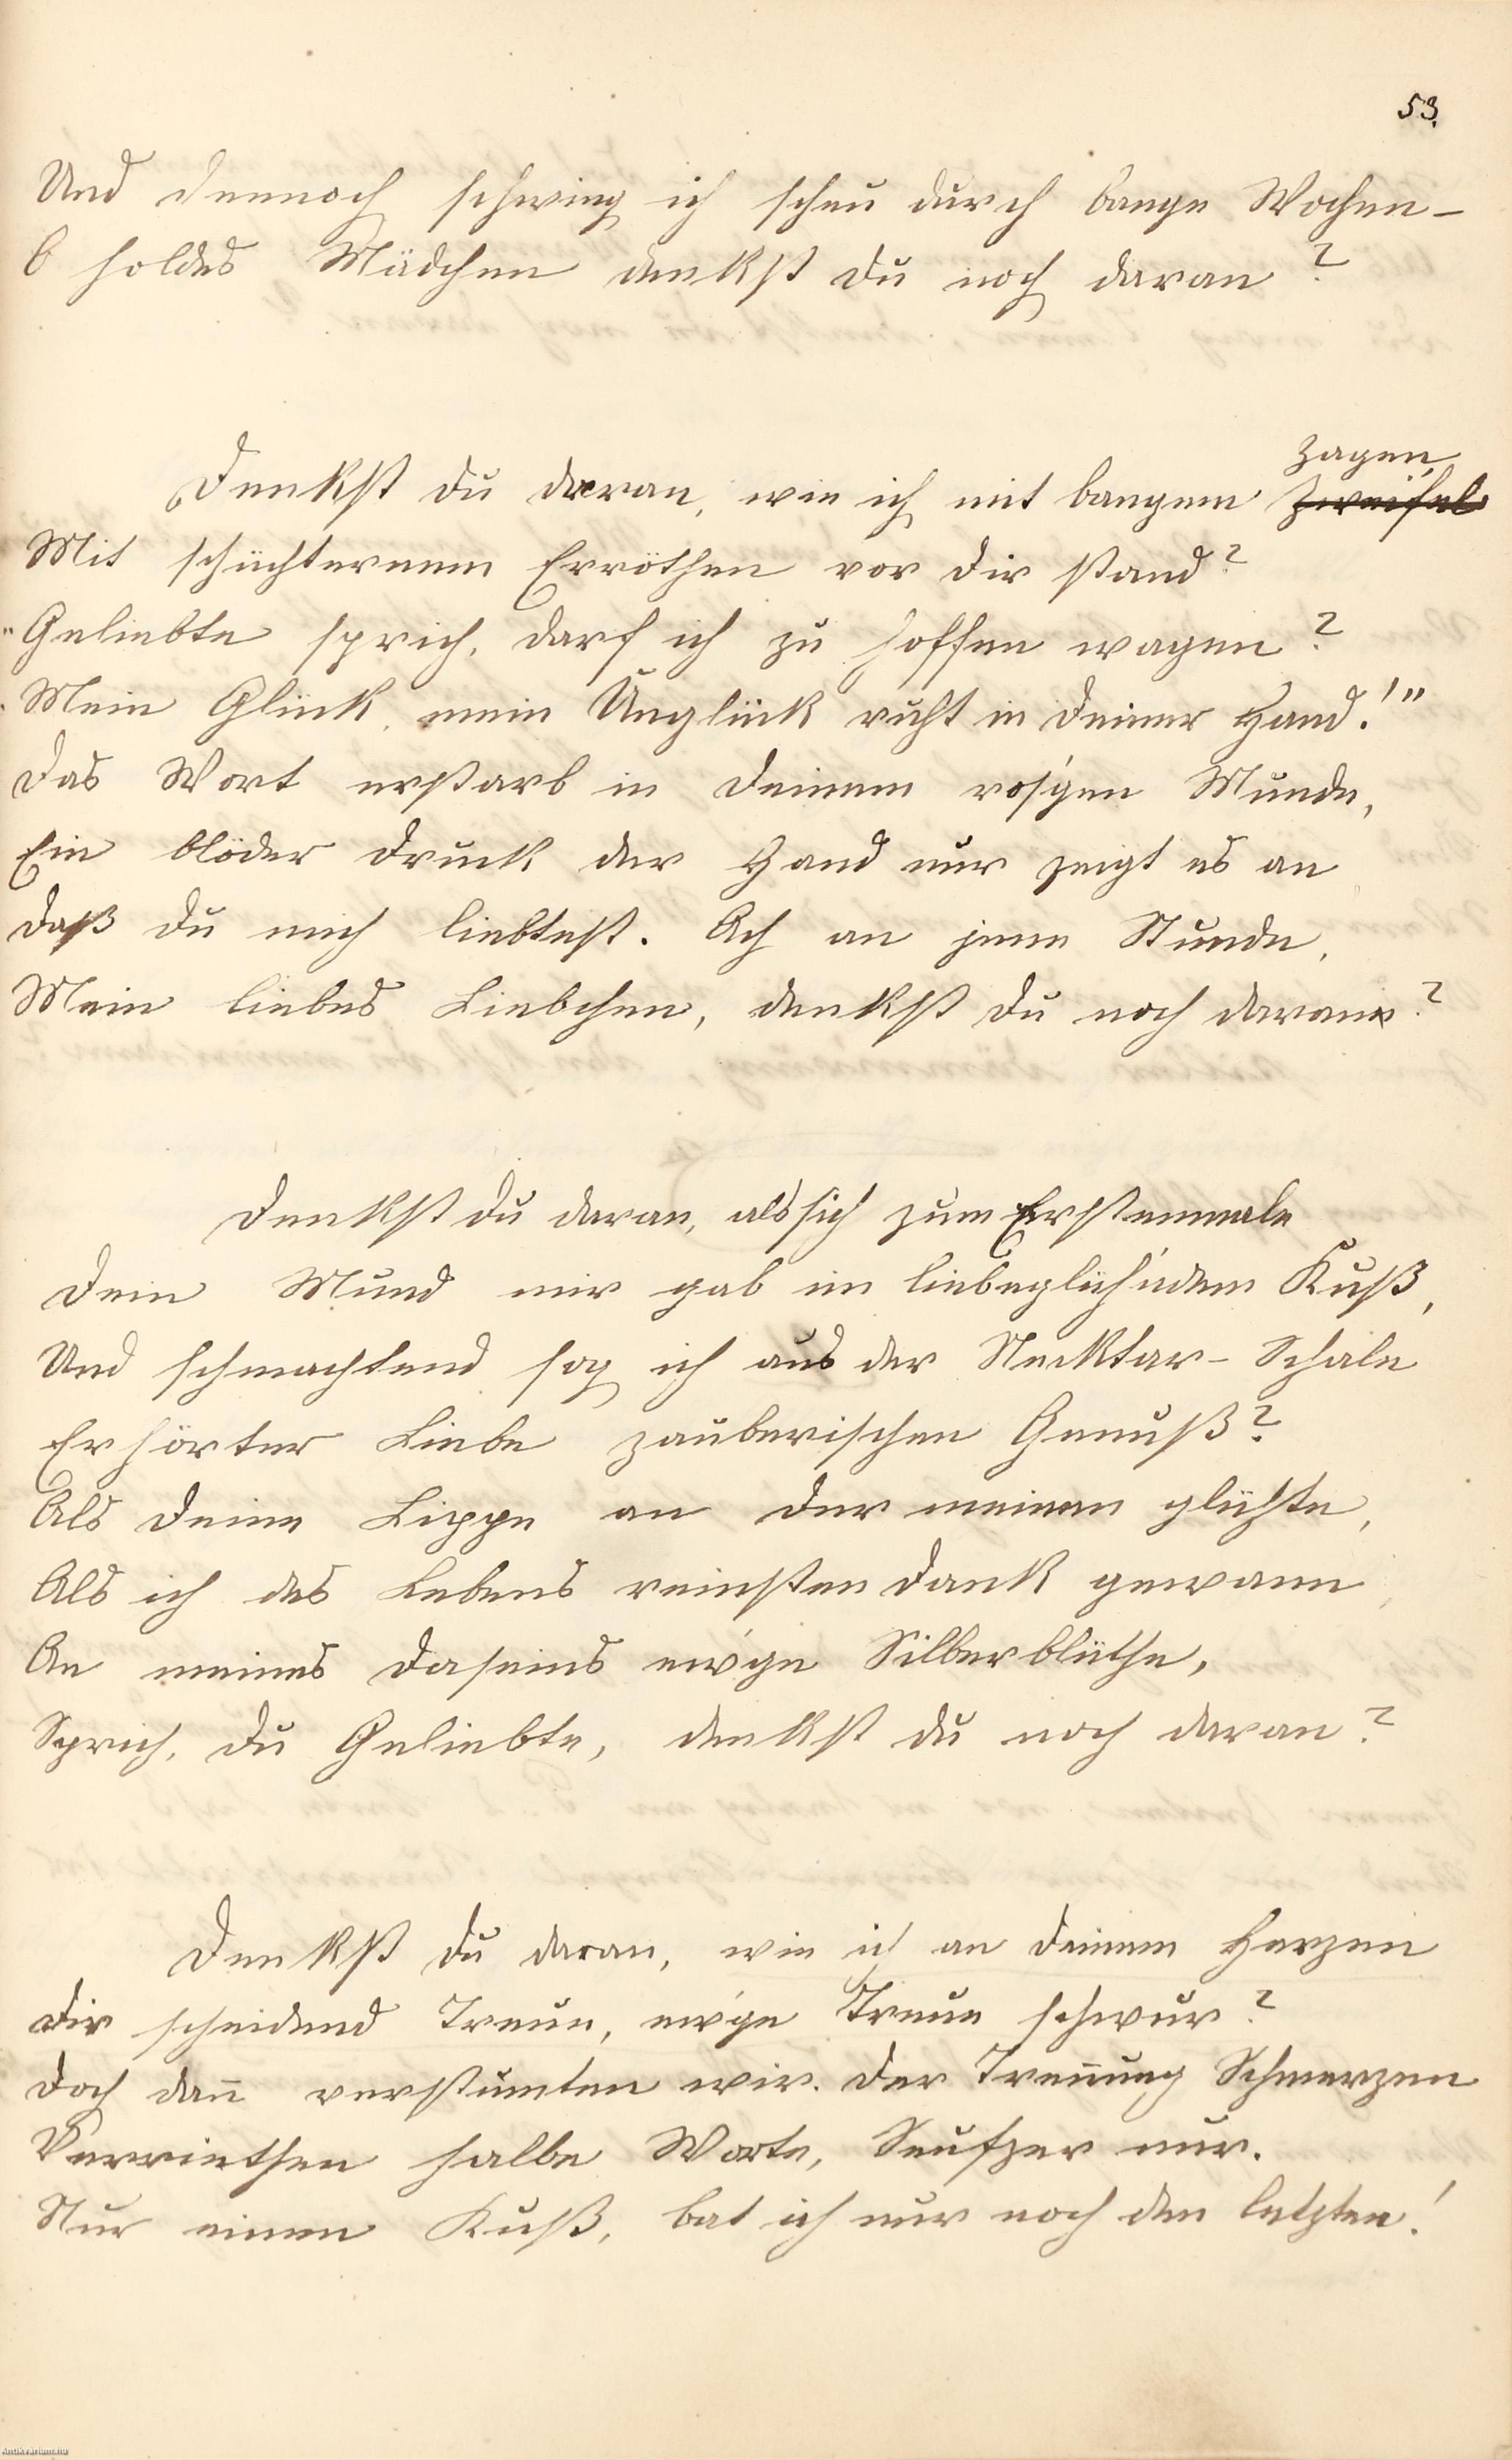 53.
Und dennoch schwieg ich scheu durch bange Wochen –
O holdes Mädchen denkst du noch daran?
Zagen,
Denkst du daran, wie ich mit bangem Zweifel
Mit schüchternem Erröthen vor dir stand?
„Geliebte sprich, darf ich zu hoffen wagen?
„Mein Glück, mein Unglück ruht in deiner Hand!"
Das Wort erstarb in deinem ros'gen Munde,
Ein blöder Druck der Hand nur zeigt es an
Daß du mich liebtest. Ach an jene Stunde,
Mein liebes Liebchen, denkst du noch daran?
Denkst du daran, als sich zum Erstenmale
Dein Mund mir gab im liebeglüh'nden Kuß,
Und schmachtend sog ich aus der Necktar-Schale
Erhörter Liebe zauberischen Genuß?
Als deine Lippe an der meinen glühte,
Als ich des Lebens reinsten Dank gewann,
An meines Daseins ew'ge Silberblüthe,
Sprich, du Geliebte, denkst du noch daran?
Denkst du daran, wie ich an deinem Herzen
Dir scheidend Treue, ew'ge Treue schwur?
Doch dan̄ verstumten wir. Der Tren̄ung Schmerzen
Verriethen halbe Worte, Seufzer nur.
Nur einen Kuß, bat ich nur noch den letzten!
Antikvarium.hu